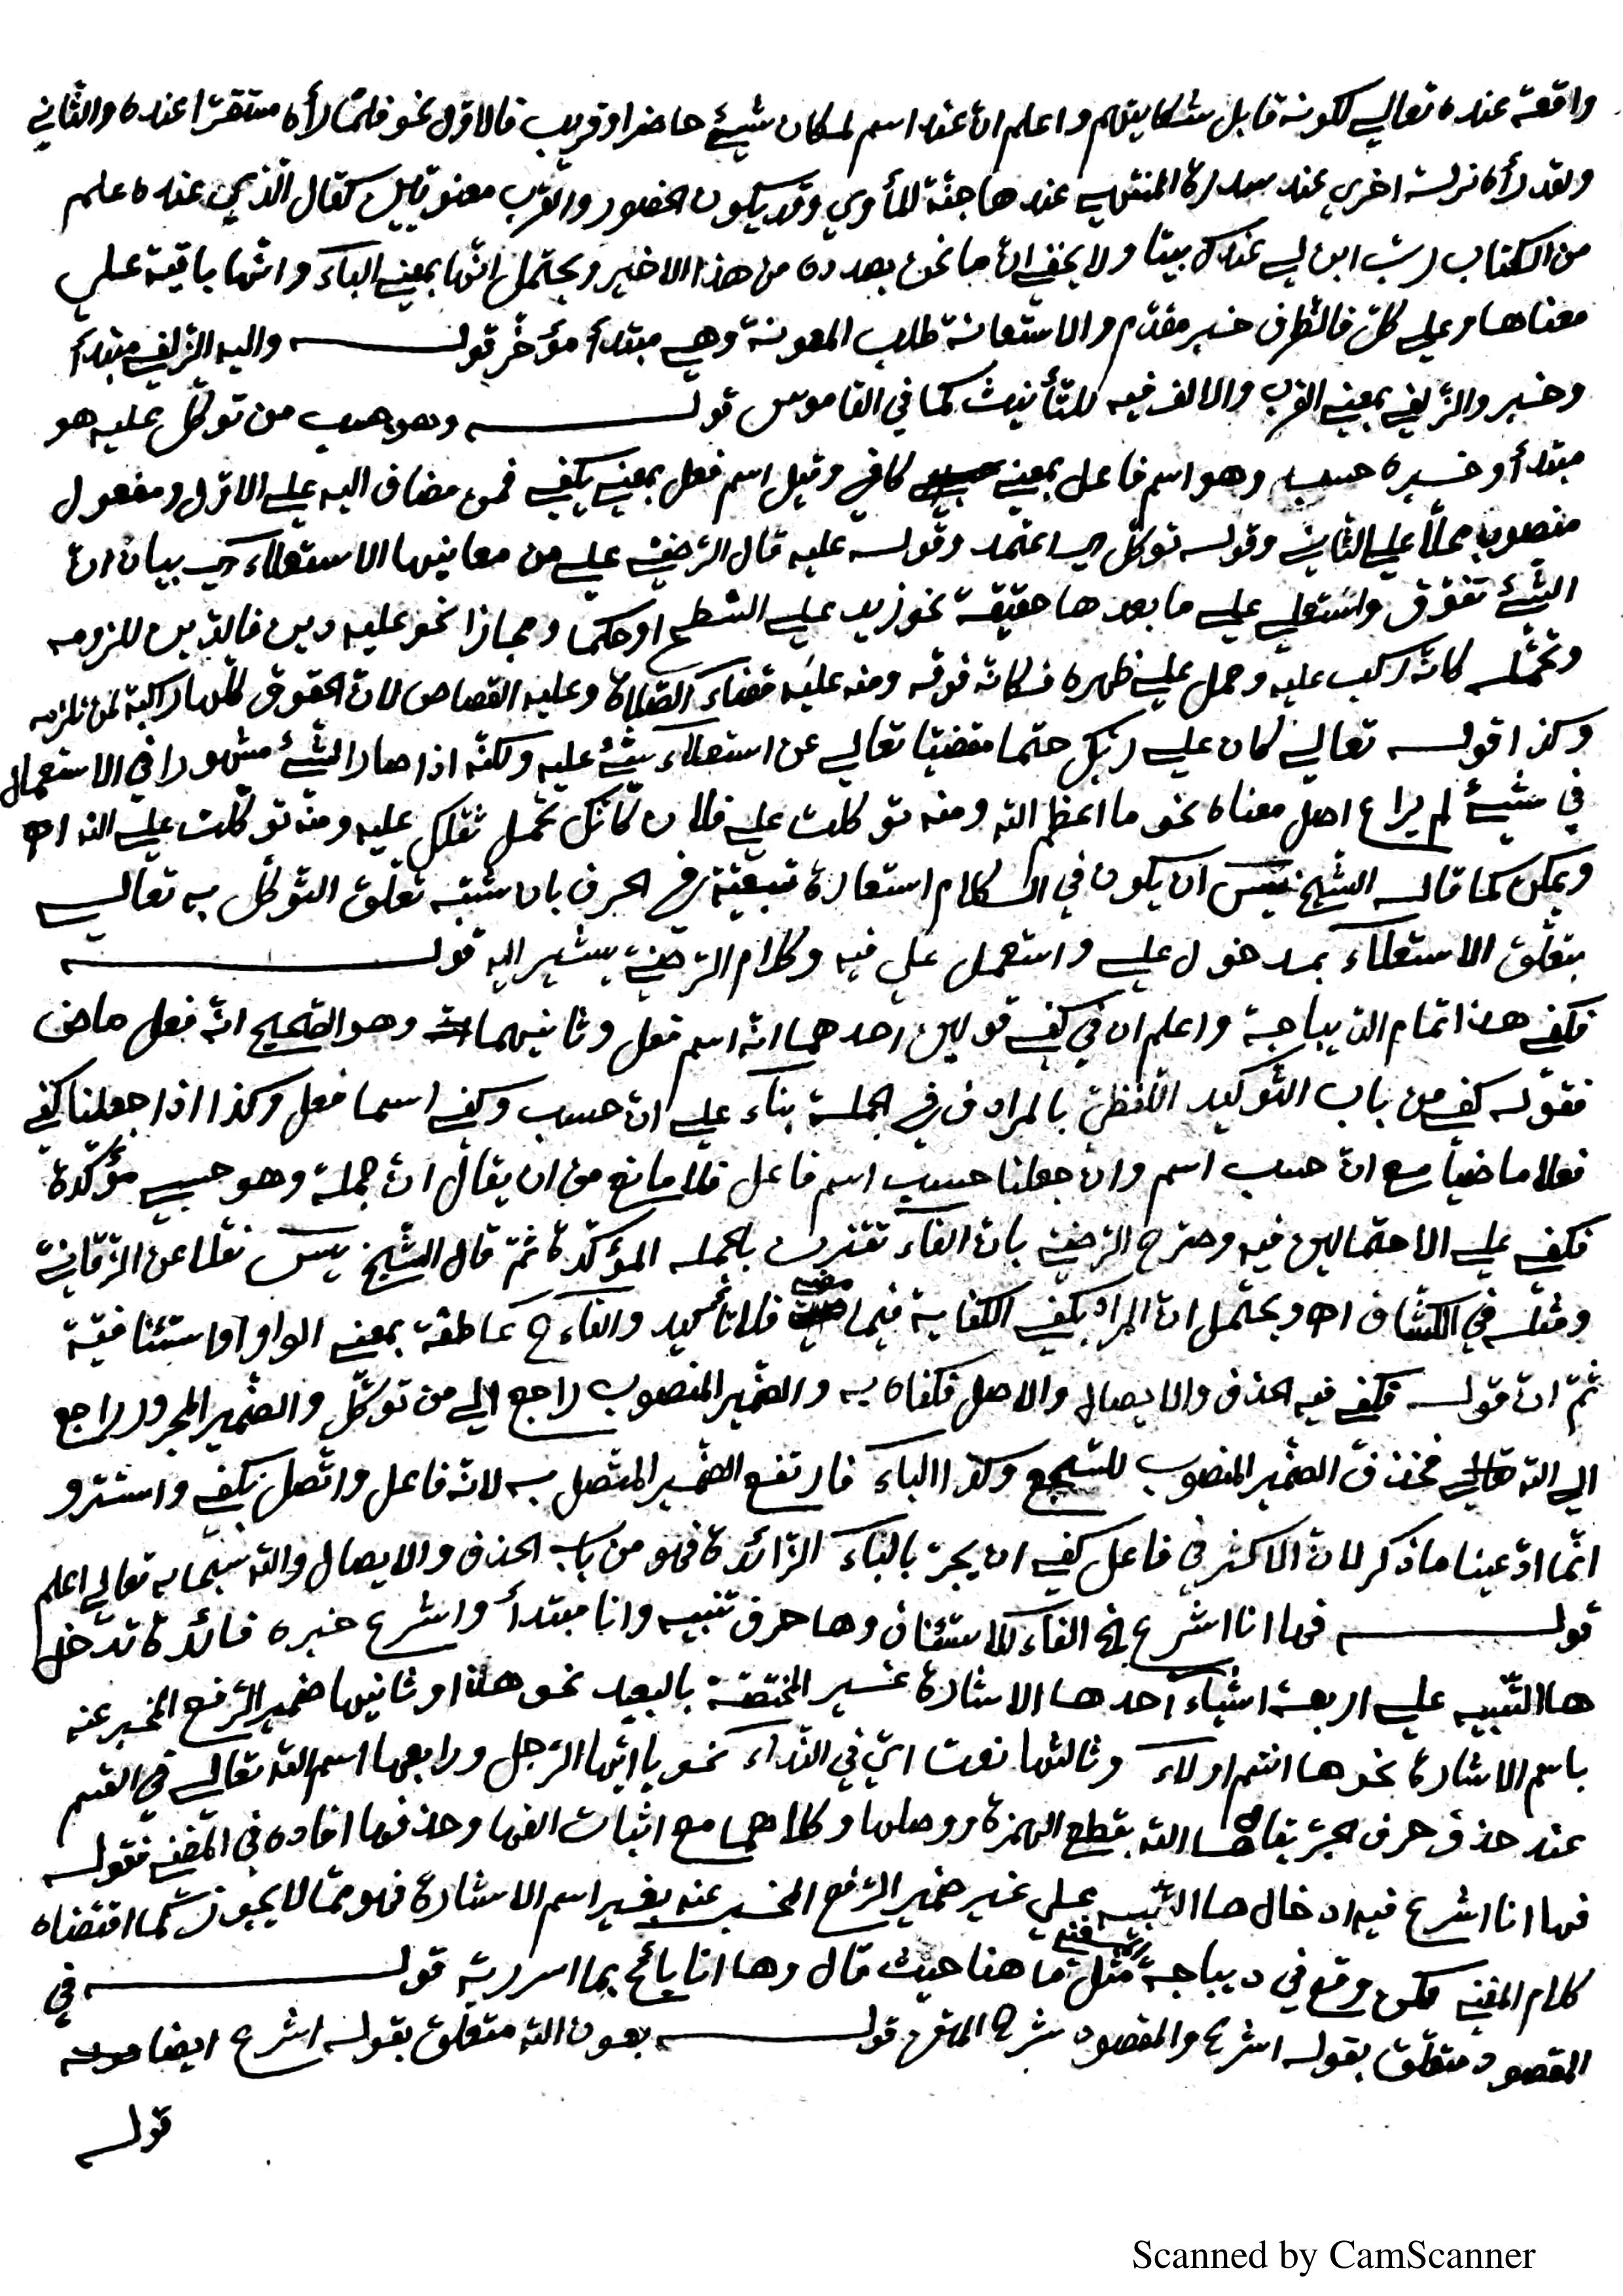 واقعة عنده تعالي لكونه قابل شكايتهم واعلم انّ عند اسم لمكان شيئ حاضر او قريب فالاوّل نحو فلمّا رأه مستقرّا عنده والثّاني
ولقد رأه نزلة اخري عند سدرة المنتهي عندها جنّة المأوي وقد يكون الحضور والقرب معنويّين كقال الّذي عنده علم
من الكتاب ربّ ابن لي عندك بيتا ولا يخفي انّ ما نحن بصدده من هذا الاخير ويحتمل انّها بمعني الباء وانّها باقية علي
معناها وعلي كلّ فالظّرف خبر مقدّم والاستعانة طلب المعونة وهي مبتدأ مؤخّر قوله واليه الزّلفي مبتدأ
وخبر والزّلفي بمعني القرب والالف فيه للتّأنيث كما في القاموس قوله وهو حسب من توكّل عليه هو
مبتدأ وخبره حسب وهو اسم فاعل بمعني كافي وقيل اسم فعل بمعني يكفي فمن مضاف اليه علي الاوّل ومفعول
منصوب محلّا علي الثّاني وقوله توكّل اي اعتمد وقوله عليه قال الرّضيّ علي من معانيها الاستعلاء اي بيان انّ
الشّيئ تفوّق واستعلي علي ما بعدها حقيقة نحو زيد علي السّطح او حكما ومجازا نحو عليه دين فالدّين للزومه
وتحمّله كانّه ركب عليه وحمل علي ظهره فكانّه فوقه ومنه عليه قضاء الصّلاة وعليه القصاص لانّ الحقوق كلّها راكبة لمن تلزمه
وكذا قوله تعالي كان علي ربّك حتما مقضيّا تعالي عن استعلاء شيئ عليه ولكنّه اذا صار الشّيئ مشهورا في الاستعمال
في شيئ لم يراع اصل معناه نحو ما اعظم اللّه ومنه توكلت علي فلان كأنّك تحمل ثقلك عليه ومنه توكّلت علي اللّه اه
ويمكن كما قاله الشّيخ يس ان يكون في الكلام استعارة تبعيّة في الحرف بان شبّه تعلّق التّوكّل به تعالي
بتعلّق الاستعلاء بمدخول علي واستعمل علي فيه وكلام الرّضيّ يشير اليه قوله
فكفي هذا تمام الدّيباجة واعلم ان في كفي قولين احدهما انّه اسم فعل وثانيهما وهو الصّحيح انّه فعل ماض
فقوله كفي من باب التّوكيد اللّفظيّ بالمرادف في الجملة بناء علي انّ حسب وكفي اسما فعل وكذا اذا جعلنا كفي
فعلا ماضيا مع انّ حسب اسم وان جعلنا حسب اسم فاعل فلا مانع من ان يقال انّ جملة وهو حسبي مؤكّدة
فكفي علي الاحتمالين فيه وصرّح الرّضيّ بانّ الفاء تقترن بالجمله المؤكّدة ثمّ قال الشّيخ يس نقلا عن الزّرقانيّ
ومثله في الكشّاف اه ويحتمل انّ المراد بكفي الكفاية فيما مضي فلا تأكيد والفاء ح عاطفة بمعني الواو او استئنافيّة
ثمّ انّ قوله فكفي فيه الحذف والايصال والاصل فكفاه به والضّمير المنصوب راجع الي من توكّل والضّمير المجرور راجع
الي اللّه تعالي فحذف الضّمير المنصوب للسّجع وكذا الباء فارتفع الضّمير المتّصل به لانّه فاعل واتّصل بكفي واستتر و
انّما ادّعينا ما ذكر لانّ الاكثر في فاعل كفي ان يجرّ بالباء الزّائدة فهو من باب الحذف والايصال واللّه سبحانه تعالي اعلم
قوله فها انا اشرع الخ الفاء للاستئناف وها حرف تنبيه وانا مبتدأ واشرع خبره فائدة تدخل
ها التّنبيه علي اربعة اشياء احدها الاشارة غير المختصّة بالبعيد نحو هذا وثانيها ضمير الرّفع المخبر عنه
باسم الاشارة نحو ها انتم اولاء وثالثها نعت ايّ في النّداء نحو يا ايّها الرّجل ورابعها اسم اللّه تعالي في القسم
عند حذف حرف الجرّ يقال ها اللّه بقطع الهمزة ووصلها وكلاهما مع اثبات الفها وحذفها افاده في المغني فقوله
فها انا اشرع فيه ادخال ها التّنبيه علي غير ضمير الرّفع المخبر عنه بغير اسم الاشارة فهو ممّا لا يجوز كما اقتضاه
كلام المغني لكن وقع في ديباجته مثل ما هنا حيث قال وها انا بائح بما اسررته قوله في
المقصود متعلّق بقوله اشرع والمقصود شرح المتن قوله بعون اللّه متعلّق بقوله اشرع ايضا
قوله
Scanned by CamScanner